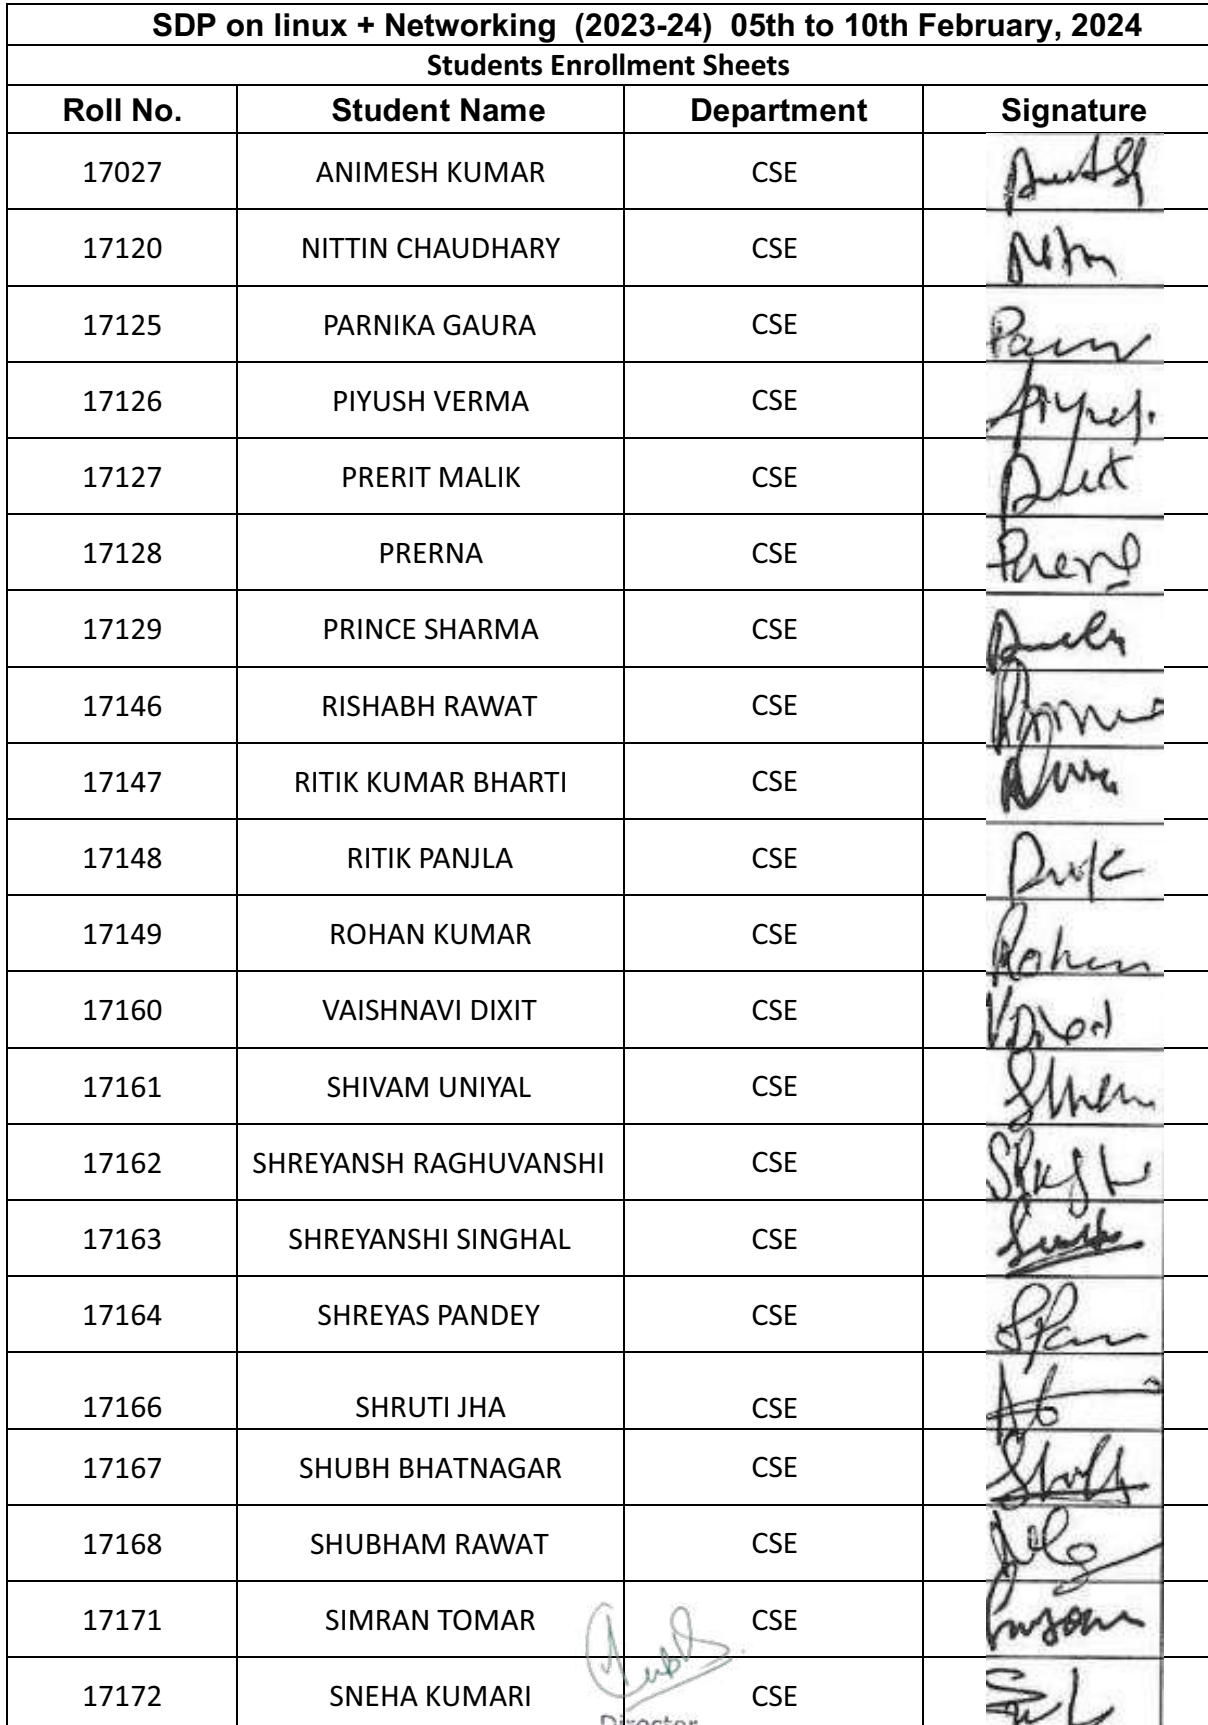 SDP on linux + Networking (2023-24) 05th to 10th February, 2024
Students Enrollment Sheets
Roll No. Student Name Department Signature
17027 ANIMESH KUMAR CSE
17120 NITTIN CHAUDHARY CSE
17125 PARNIKA GAURA CSE
17126 PIYUSH VERMA CSE
17127 PRERIT MALIK CSE
17128 PRERNA CSE
17129 PRINCE SHARMA CSE
17146 RISHABH RAWAT CSE
17147 RITIK KUMAR BHARTI CSE
17148 RITIK PANJLA CSE
17149 ROHAN KUMAR CSE Rohan
17160 VAISHNAVI DIXIT CSE
17161 SHIVAM UNIYAL CSE
17162 SHREYANSH RAGHUVANSHI CSE
17163 SHREYANSHI SINGHAL CSE
17164 SHREYAS PANDEY CSE
17166 SHRUTI JHA CSE
17167 SHUBH BHATNAGAR CSE
17168 SHUBHAM RAWAT CSE
17171 SIMRAN TOMAR CSE
17172 SNEHA KUMARI CSE
Director